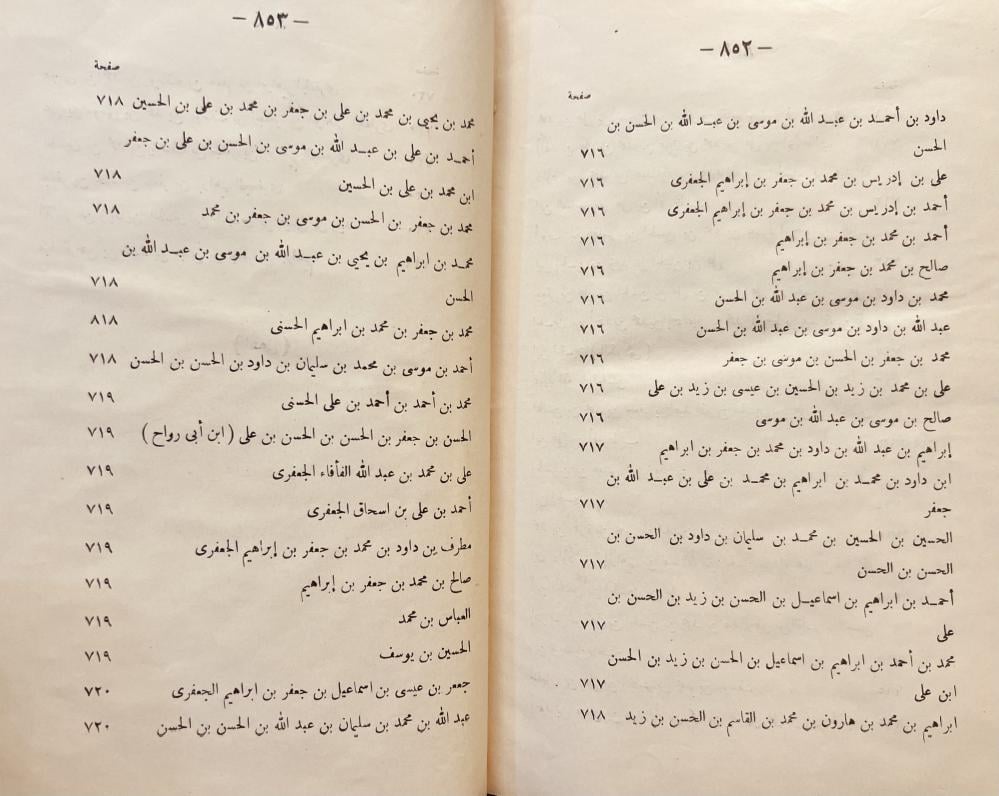 — ٨٥٢ —
صفحة
داود بن أحمد بن عبد الله بن موسى بن عبد الله بن الحسن بن
الحسن ٧١٦
على بن إدريس بن محمد بن جعفر بن إبراهيم الجعفرى ٧١٦
أحمد بن إدريس بن محمد بن جعفر بن إبراهيم الجعفرى ٧١٦
أحمد بن محمد بن جعفر بن إبراهيم ٧١٦
صالح بن محمد بن جعفر بن إبراهيم ٧١٦
محمد بن داود بن موسى بن عبد الله بن الحسن ٧١٦
عبد الله بن داود بن موسى بن عبد الله بن الحسن ٧١٦
محمد بن جعفر بن الحسن بن موسى بن جعفر ٧١٦
على بن محمد بن زيد بن الحسين بن عيسى بن زيد بن على ٧١٦
صالح بن موسى بن عبد الله بن موسى ٧١٦
إبراهيم بن عبد الله بن داود بن محمد بن جعفر بن ابراهيم ٧١٧
ابن داود بن محمد بن ابراهيم بن محمد بن على بن عبد الله بن
جعفر ٧١٧
الحسين بن الحسين بن محمد بن سليمان بن داود بن الحسن بن
الحسن بن الحسن ٧١٧
أحمد بن ابراهيم بن اسماعيل بن الحسن بن زيد بن الحسن بن
على ٧١٧
محمد بن أحمد بن ابراهيم بن اسماعيل بن الحسن بن زيد بن الحسن
ابن على ٧١٧
ابراهيم بن محمد بن هارون بن محمد بن القاسم بن الحسن بن زيد ٧١٨
— ٨٥٣ —
صفحة
محمد بن يحيى بن محمد بن على بن جعفر بن محمد بن على بن الحسين ٧١٨
أحمد بن على بن عبد الله بن موسى بن الحسن بن على بن جعفر
ابن محمد بن على بن الحسين ٧١٨
محمد بن جعفر بن الحسن بن موسى بن جعفر بن محمد ٧١٨
محمد بن ابراهيم بن يحيى بن عبد الله بن موسى بن عبد الله بن
الحسن ٧١٨
محمد بن جعفر بن محمد بن ابراهيم الحسنى ٨١٨
أحمد بن موسى بن محمد بن سليمان بن داود بن الحسن بن الحسن ٧١٨
محمد بن أحمد بن أحمد بن على الحسنى ٧١٩
الحسن بن جعفر بن الحسن بن الحسن بن على (ابن أبى رواح) ٧١٩
على بن محمد بن عبد الله الفأفاء الجعفرى ٧١٩
أحمد بن على بن اسحاق الجعفرى ٧١٩
مطرف بن داود بن محمد بن جعفر بن إبراهيم الجعفرى ٧١٩
صالح بن محمد بن جعفر بن إبراهيم ٧١٩
العباس بن محمد ٧١٩
الحسين بن يوسف ٧١٩
جعفر بن عيسى بن اسماعيل بن جعفر بن ابراهيم الجعفرى ٧٢٠
عبد الله بن محمد بن سليمان بن عبد الله بن الحسن بن الحسن ٧٢٠